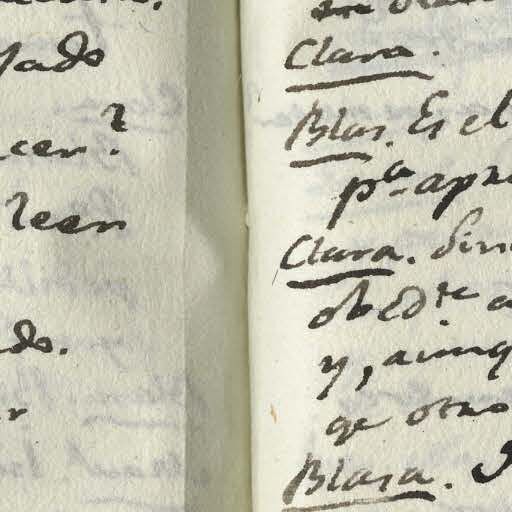 ado
cer?
leer
do.
r
Clara.
Blas. Es el
pa apr
Clara. Sin
obedte a
y, aunq
qe otro
Blasa.